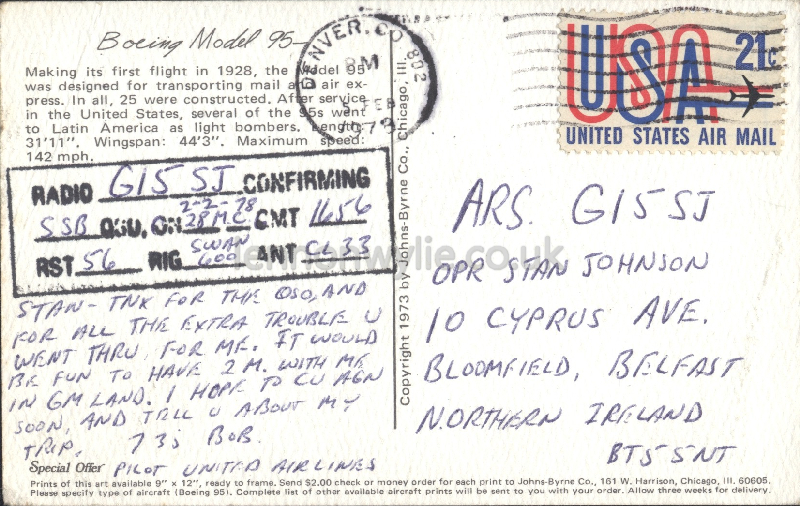 Boeing Model 95—
Making its first flight in 1928, the Model 95
was designed for transporting mail and air ex-
press. In all, 25 were constructed. After service
in the United States, several of the 95s went
to Latin America as light bombers. Length:
31'11". Wingspan: 44'3". Maximum speed:
142 mph.
DENVER, CO 802
PM
FEB
1978
USA 21c
UNITED STATES AIR MAIL
RADIO GI5SJ CONFIRMING
SSB QSO, ON 2-2-78 28 MC GMT 1656
RST 56 RIG SWAN 600 ANT CL33
STAN- TNX FOR THE QSO, AND
FOR ALL THE EXTRA TROUBLE U
WENT THRU FOR ME. IT WOULD
BE FUN TO HAVE 2 M. WITH ME
IN GM LAND. I HOPE TO CU AGN
SOON, AND TELL U ABOUT MY
TRIP. 73s BOB.
PILOT UNITED AIRLINES
Copyright 1973 by Johns-Byrne Co., Chicago, Ill.
ARS. GI5SJ
OPR STAN JOHNSON
10 CYPRUS AVE.
BLOOMFIELD, BELFAST
NORTHERN IRELAND
BT5 5NT
lennonwylie.co.uk
Special Offer
Prints of this art available 9" x 12", ready to frame. Send $2.00 check or money order for each print to Johns-Byrne Co., 161 W. Harrison, Chicago, Ill. 60605.
Please specify type of aircraft (Boeing 95). Complete list of other available aircraft prints will be sent to you with your order. Allow three weeks for delivery.